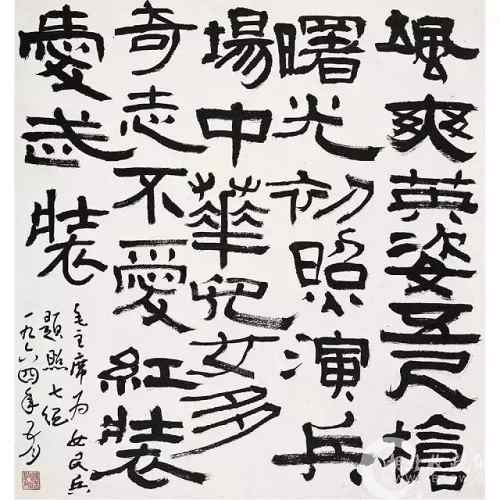 颯爽英姿五尺槍
曙光初照演兵
場中華兒女多
奇志不愛紅裝
愛武裝
毛主席为女民兵
題照七绝
一九六四年五月